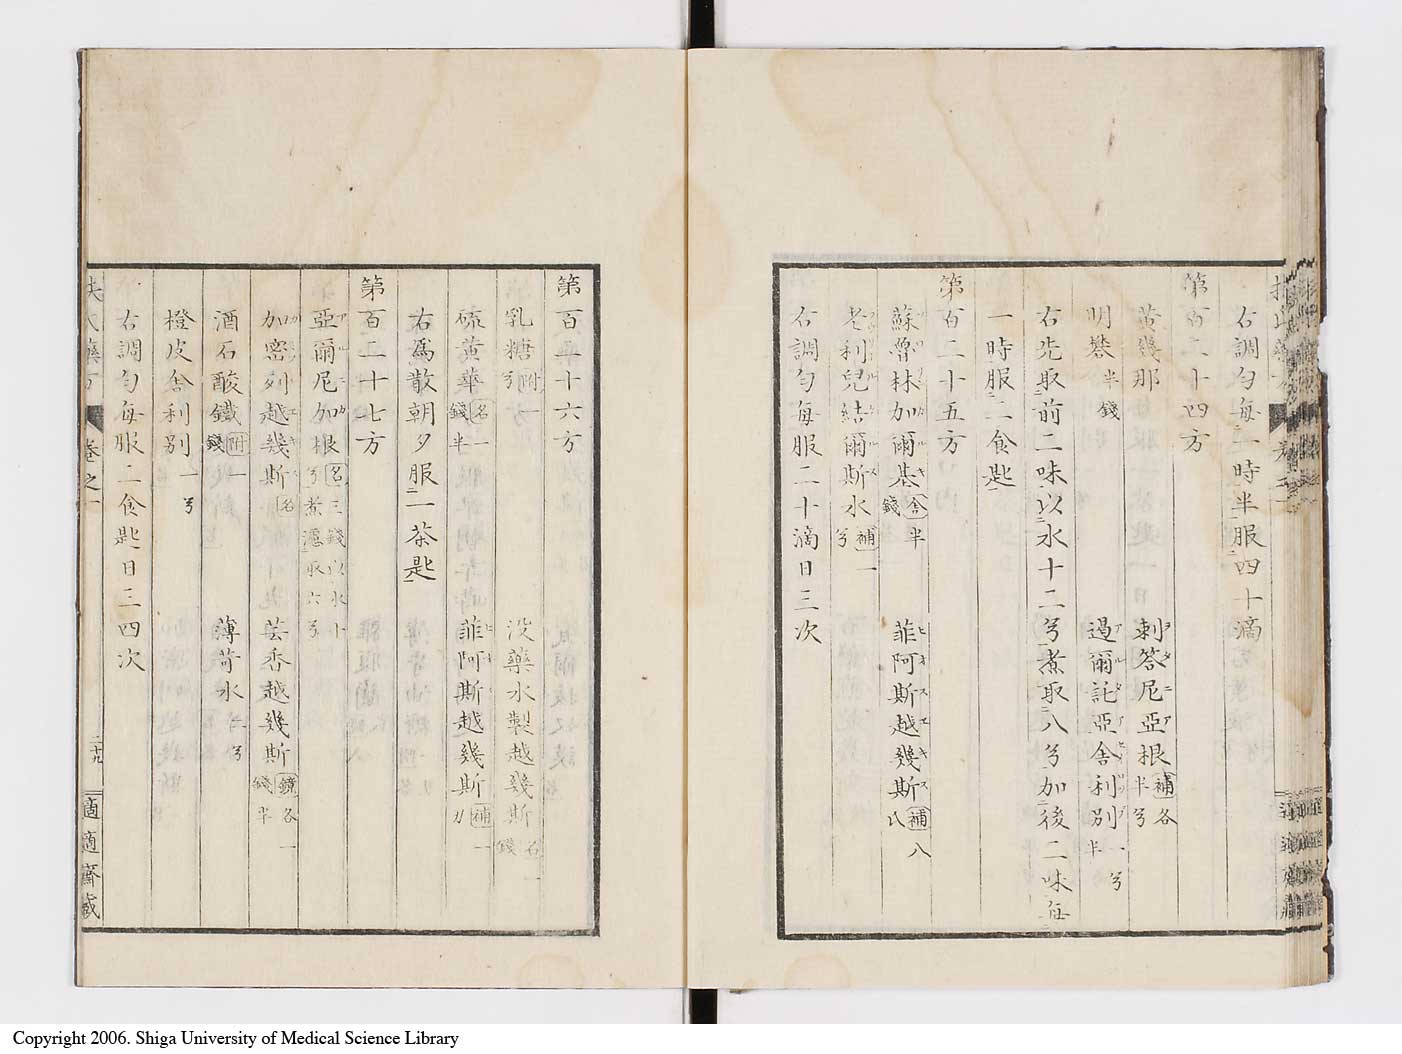 右調勻每一時半服四十滴
第百二十四方
黃幾那　刺答尼亞根補各半兮
明礬半錢　過爾託亞舍利別一兮半
右先取前二味以水十二兮煮取八兮加後二味每
一時服二食匙
第百二十五方
蘇魯林加爾基舍半錢　菲阿斯越幾斯補八氏
老利兒結爾斯水補一兮
右調勻每服二十滴日三次
第百二十六方
乳糖附一兮　沒藥水製越幾斯名一錢
硫黃華名一錢半　菲阿斯越幾斯補一刀
右為散朝夕服一茶匙
第百二十七方
亞爾尼加根名三錢以水十兮煮漉取六兮
加密列越幾斯名　芸香越幾斯鏡各一錢半
酒石酸鐵附一錢　薄荷水二兮
橙皮舍利別一兮
右調勻每服二食匙日三四次
扶氏藥方　卷之一　二十九　適適齋藏
Copyright 2006. Shiga University of Medical Science Library